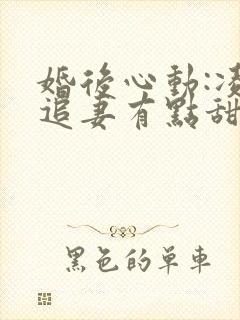 婚後心動:凌
追妻有點甜
黑色的單車